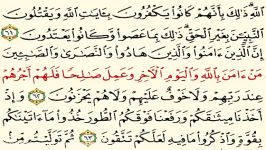 ٱللَّهِ ذَٰلِكَ بِأَنَّهُمْ كَانُوا۟ يَكْفُرُونَ بِـَٔايَٰتِ ٱللَّهِ وَيَقْتُلُونَ
ٱلنَّبِيِّـۧنَ بِغَيْرِ ٱلْحَقِّ ذَٰلِكَ بِمَا عَصَوا۟ وَّكَانُوا۟ يَعْتَدُونَ ٦١
إِنَّ ٱلَّذِينَ ءَامَنُوا۟ وَٱلَّذِينَ هَادُوا۟ وَٱلنَّصَٰرَىٰ وَٱلصَّٰبِـِٔينَ
مَنْ ءَامَنَ بِٱللَّهِ وَٱلْيَوْمِ ٱلْءَاخِرِ وَعَمِلَ صَٰلِحًا فَلَهُمْ أَجْرُهُمْ
عِندَ رَبِّهِمْ وَلَا خَوْفٌ عَلَيْهِمْ وَلَا هُمْ يَحْزَنُونَ ٦٢ وَإِذْ
أَخَذْنَا مِيثَٰقَكُمْ وَرَفَعْنَا فَوْقَكُمُ ٱلطُّورَ خُذُوا۟ مَآ ءَاتَيْنَٰكُم
بِقُوَّةٍ وَٱذْكُرُوا۟ مَا فِيهِ لَعَلَّكُمْ تَتَّقُونَ ٦٣ ثُمَّ تَوَلَّيْتُم مِّنۢ